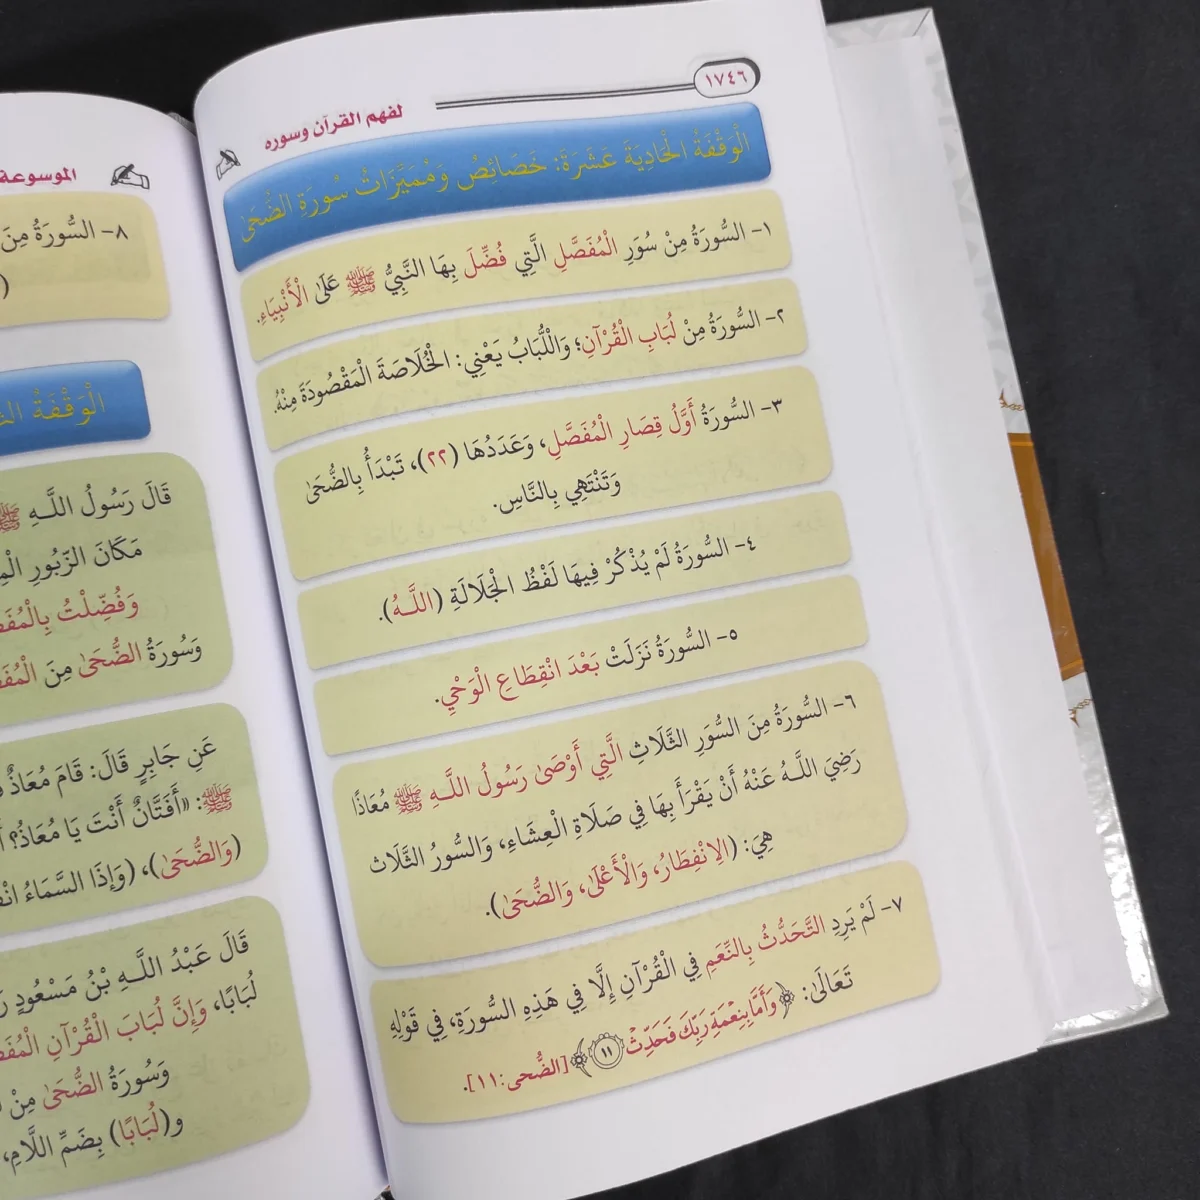 ١٧٤٦
لفهم القرآن وسوره
الْوَقْفَةُ الْحَادِيَةَ عَشَرَةَ: خَصَائِصُ وَمُمَيِّزَاتُ سُورَةِ الضُّحَىٰ
١- السُّورَةُ مِنْ سُوَرِ الْمُفَصَّلِ الَّتِي فُضِّلَ بِهَا النَّبِيُّ ﷺ عَلَى الْأَنْبِيَاءِ.
٢- السُّورَةُ مِنْ لُبَابِ الْقُرْآنِ؛ وَاللُّبَابُ يَعْنِي: الْخُلَاصَةَ الْمَقْصُودَةَ مِنْهُ.
٣- السُّورَةُ أَوَّلُ قِصَارِ الْمُفَصَّلِ، وَعَدَدُهَا (٢٢)، تَبْدَأُ بِالضُّحَىٰ
وَتَنْتَهِي بِالنَّاسِ.
٤- السُّورَةُ لَمْ يُذْكَرْ فِيهَا لَفْظُ الْجَلَالَةِ (اللَّـهُ).
٥- السُّورَةُ نَزَلَتْ بَعْدَ انْقِطَاعِ الْوَحْيِ.
٦- السُّورَةُ مِنَ السُّوَرِ الثَّلَاثِ الَّتِي أَوْصَىٰ رَسُولُ اللَّـهِ ﷺ مُعَاذًا
رَضِيَ اللَّـهُ عَنْهُ أَنْ يَقْرَأَ بِهَا فِي صَلَاةِ الْعِشَاءِ، وَالسُّوَرُ الثَّلَاث
هِيَ: (الِانْفِطَارُ، وَالْأَعْلَىٰ، وَالضُّحَىٰ).
٧- لَمْ يَرِدِ التَّحَدُّثُ بِالنِّعَمِ فِي الْقُرْآنِ إِلَّا فِي هَذِهِ السُّورَةِ، فِي قَوْلِهِ
تَعَالَىٰ: ﴿وَأَمَّا بِنِعْمَةِ رَبِّكَ فَحَدِّثْ ١١﴾ [الضُّحى: ١١].
الموسوعة
٨- السُّورَةُ مِنَ
(
الْوَقْفَةُ
قَالَ رَسُولُ اللَّـهِ ﷺ
مَكَانَ الزَّبُورِ
وَفُضِّلْتُ
وَسُورَةُ الضُّحَىٰ مِنَ
عَنِ جَابِرٍ قَالَ: قَامَ مُعَاذٌ
ﷺ: «أَفَتَّانٌ أَنْتَ يَا مُعَاذُ؟
(وَالضُّحَىٰ)، (وَإِذَا السَّمَاءُ
قَالَ عَبْدُ اللَّـهِ بْنُ مَسْعُودٍ
لُبَابًا، وَإِنَّ لُبَابَ الْقُرْآنِ
وَسُورَةُ الضُّحَىٰ مِنْ
و(لُبَابًا) بِضَمِّ اللَّامِ،